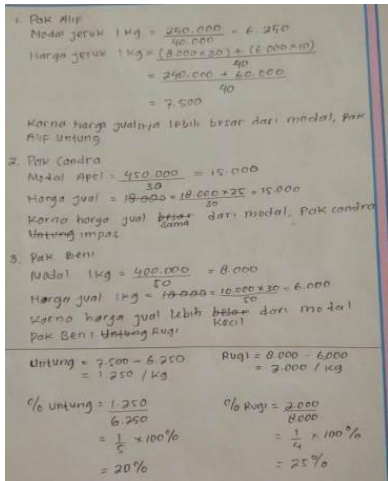 1. Pak Alif
Modal jeruk 1 Kg = 250.000 / 40.000 = 6.250
Harga jeruk 1 Kg = (8.000 x 30) + (6.000 x 10) / 40
= 240.000 + 60.000 / 40
= 7.500
Karna harga jualnya lebih besar dari modal, Pak
Alif untung
2. Pak Candra
Modal Apel = 450.000 / 30 = 15.000
Harga jual = 18.000 = 18.000 x 25 / 30 = 15.000
Karna harga jual besar sama dari modal, Pak Candra
Untung impas
3. Pak Beni
Modal 1 Kg = 400.000 / 50 = 8.000
Harga jual 1 Kg = 10.000 = 10.000 x 30 / 50 = 6.000
Karna harga jual lebih besar kecil dari modal
Pak Beni Untung Rugi
Untung = 7.500 - 6.250
= 1.250 / Kg
% Untung = 1.250 / 6.250
= 1/5 x 100%
= 20%
Rugi = 8.000 - 6000
= 2.000 / Kg
% Rugi = 2.000 / 8.000
= 1/4 x 100%
= 25%